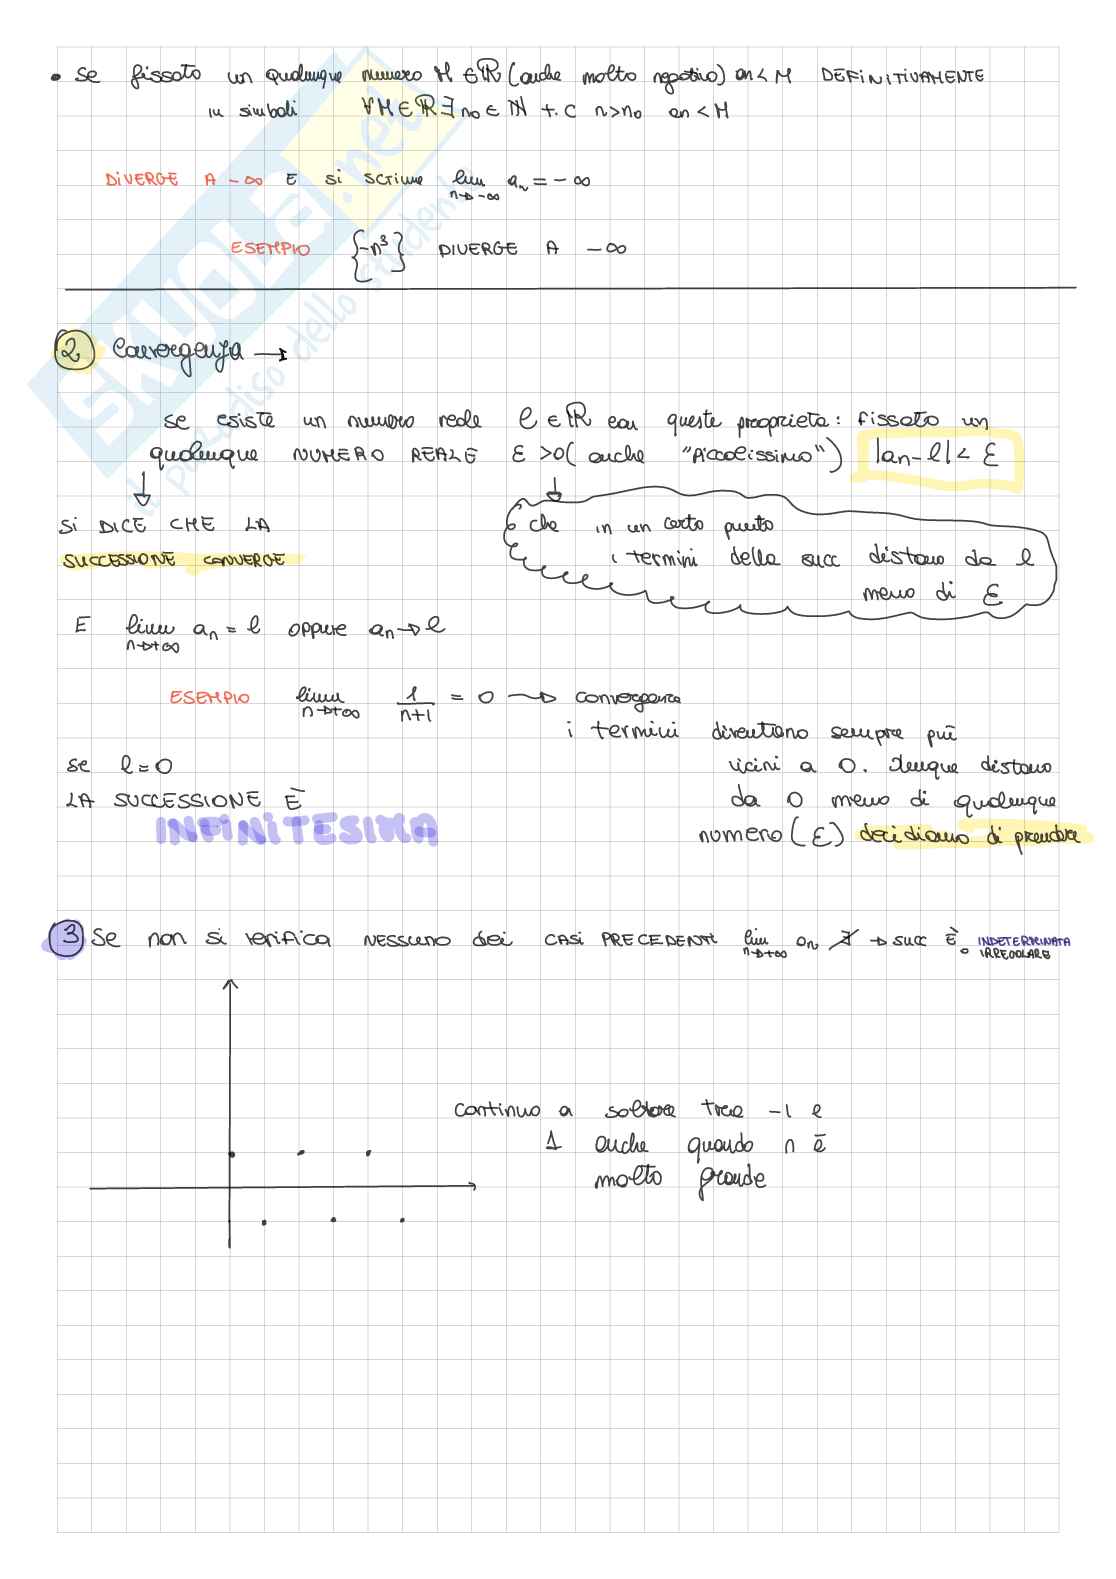 • se fissato un qualunque numero M ∈ ℝ (anche molto negativo) an < M DEFINITIVAMENTE
in simboli ∀M ∈ ℝ ∃ n₀ ∈ ℕ t.c n>n₀ an < M
DIVERGE A -∞ E si scrive lim n→-∞ aₙ = -∞
ESEMPIO {-n³} DIVERGE A -∞
② Convergenza →
se esiste un numero reale l ∈ ℝ con queste proprieta: fissato un
qualunque NUMERO REALE ε >0 (anche "piccolissimo") |an - l| < ε
↓ ↓
SI DICE CHE LA
che in un certo punto
SUCCESSIONE CONVERGE
i termini della succ distano da l
meno di ε
E lim n→+∞ aₙ = l oppure aₙ → l
ESEMPIO lim n→+∞ 1/(n+1) = 0 → convergenza
i termini diventano sempre più
se l=0
vicini a 0. dunque distano
LA SUCCESSIONE È
da 0 meno di qualunque
INFINITESIMA
numero (ε) decidiamo di prendere
③ Se non si verifica NESSUNO dei CASI PRECEDENTI lim n→+∞ an ∄ → succ È INDETERMINATA
o IRREGOLARE
continuo a saltare tra -1 e
1 anche quando n è
molto grande
SKUOLA.net
il paradiso dello studente